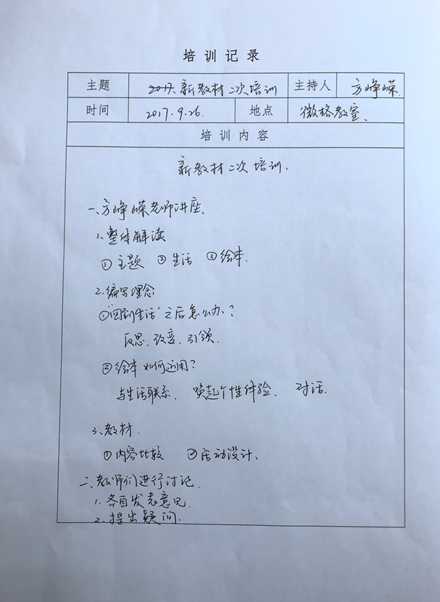 培训记录
主题 2017.新教材二次培训 主持人 方峥嵘
时间 2017.9.26. 地点 微格教室.
培训内容
新教材二次培训.
一.方峥嵘老师讲座.
1.整体解读
①主题 ②生活 ③绘本.
2.编写理念
①"回到生活"之后怎么办?
反思、改变、引领.
②绘本如何运用?
与生活联系、唤起个性体验、对话.
3.教材.
①内容比较 ②活动设计.
二.教师们进行讨论.
1.各自发表意见.
2.提出疑问.